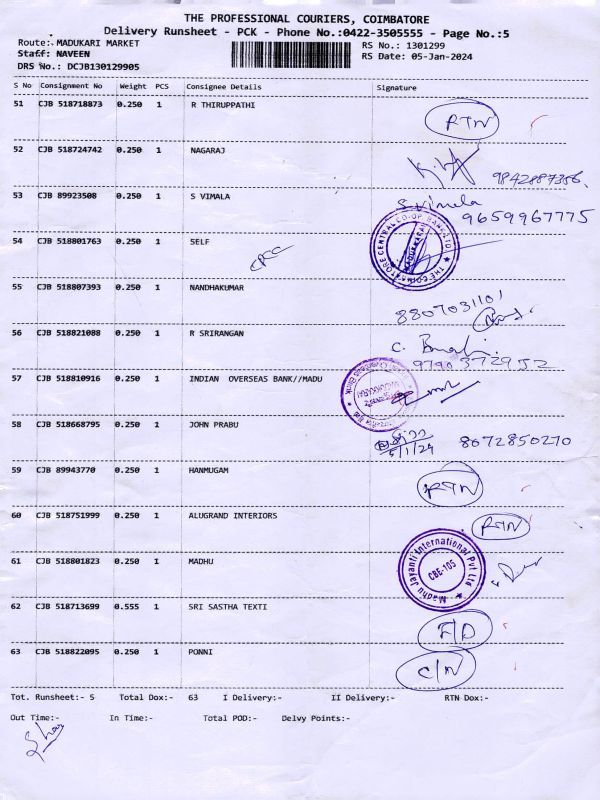 THE PROFESSIONAL COURIERS, COIMBATORE
Delivery Runsheet - PCK - Phone No.:0422-3505555 - Page No.:5
Route: MADUKARI MARKET RS No.: 1301299
Staff: NAVEEN RS Date: 05-Jan-2024
DRS No.: DCJB130129905
S No Consignment No Weight PCS Consignee Details Signature
51 CJB 518718873 0.250 1 R THIRUPPATHI RTN
52 CJB 518724742 0.250 1 NAGARAJ 9842887356
53 CJB 89923508 0.250 1 S VIMALA S. Vimala
9659967775
THE COIMBATORE CENTRAL CO-OP BANK LTD. MADUKKARAI
54 CJB 518801763 0.250 1 SELF
55 CJB 518807393 0.250 1 NANDHAKUMAR 8807031101
56 CJB 518821088 0.250 1 R SRIRANGAN C.
9790372952
57 CJB 518810916 0.250 1 INDIAN OVERSEAS BANK//MADU
58 CJB 518668795 0.250 1 JOHN PRABU 8072850270
5/1/24
59 CJB 89943770 0.250 1 HANMUGAM RTN
60 CJB 518751999 0.250 1 ALUGRAND INTERIORS RTN
61 CJB 518801823 0.250 1 MADHU Madhu Jayanti International Pvt Ltd CBE-105
62 CJB 518713699 0.555 1 SRI SASTHA TEXTI F/D
63 CJB 518822095 0.250 1 PONNI C/N
Tot. Runsheet:- 5 Total Dox:- 63 I Delivery:- II Delivery:- RTN Dox:-
Out Time:- In Time:- Total POD:- Delvy Points:-